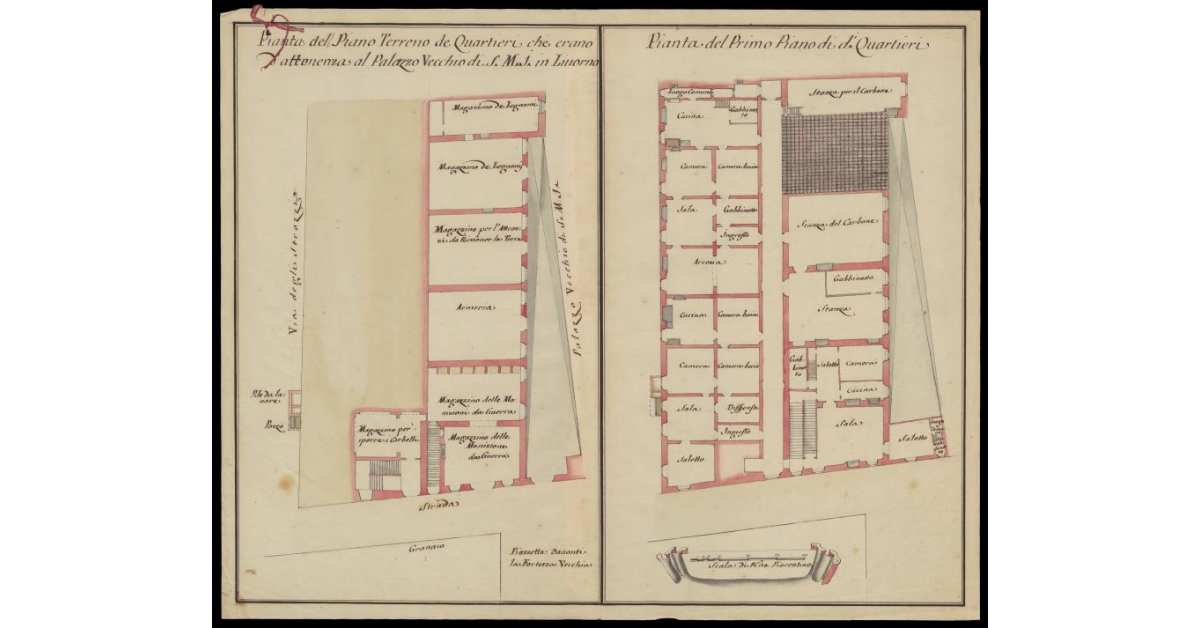 Pianta del Piano Terreno de Quartieri che erano
attenenza al Palazzo Vecchio di S. M. I. in Livorno
Magazzino de Legnami
Magazzino de Legnami
Magazzino per l'Attre
da la Terra
Armeria
Magazzino delle Mu
nizioni da Guerra
Magazzino delle
Munizioni
da Guerra
Magazzino per
riporre i Carbelli
Via degli
Palazzo Vecchio di S. M. I.
Pile da la
vare
Pozzo
Strada
Granaio
Piazzetta davanti
la Fortezza Vecchia
Pianta del Primo Piano di d.i Quartieri
Luogo Comune
Cucina
Gabbinet
to
Camera
Camera buia
Sala
Gabbinetto
Ingresso
Arcova
Cucina
Camera buia
Camera
Camera buia
Sala
Dispensa
Ingresso
Salotto
Stanza per il Carbone
Stanza del Carbone
Gabbinetto
Stanza
Gab
binet
to
Salotto
Camera
Cucina
Sala
Salotto
Scala di Fiorentine